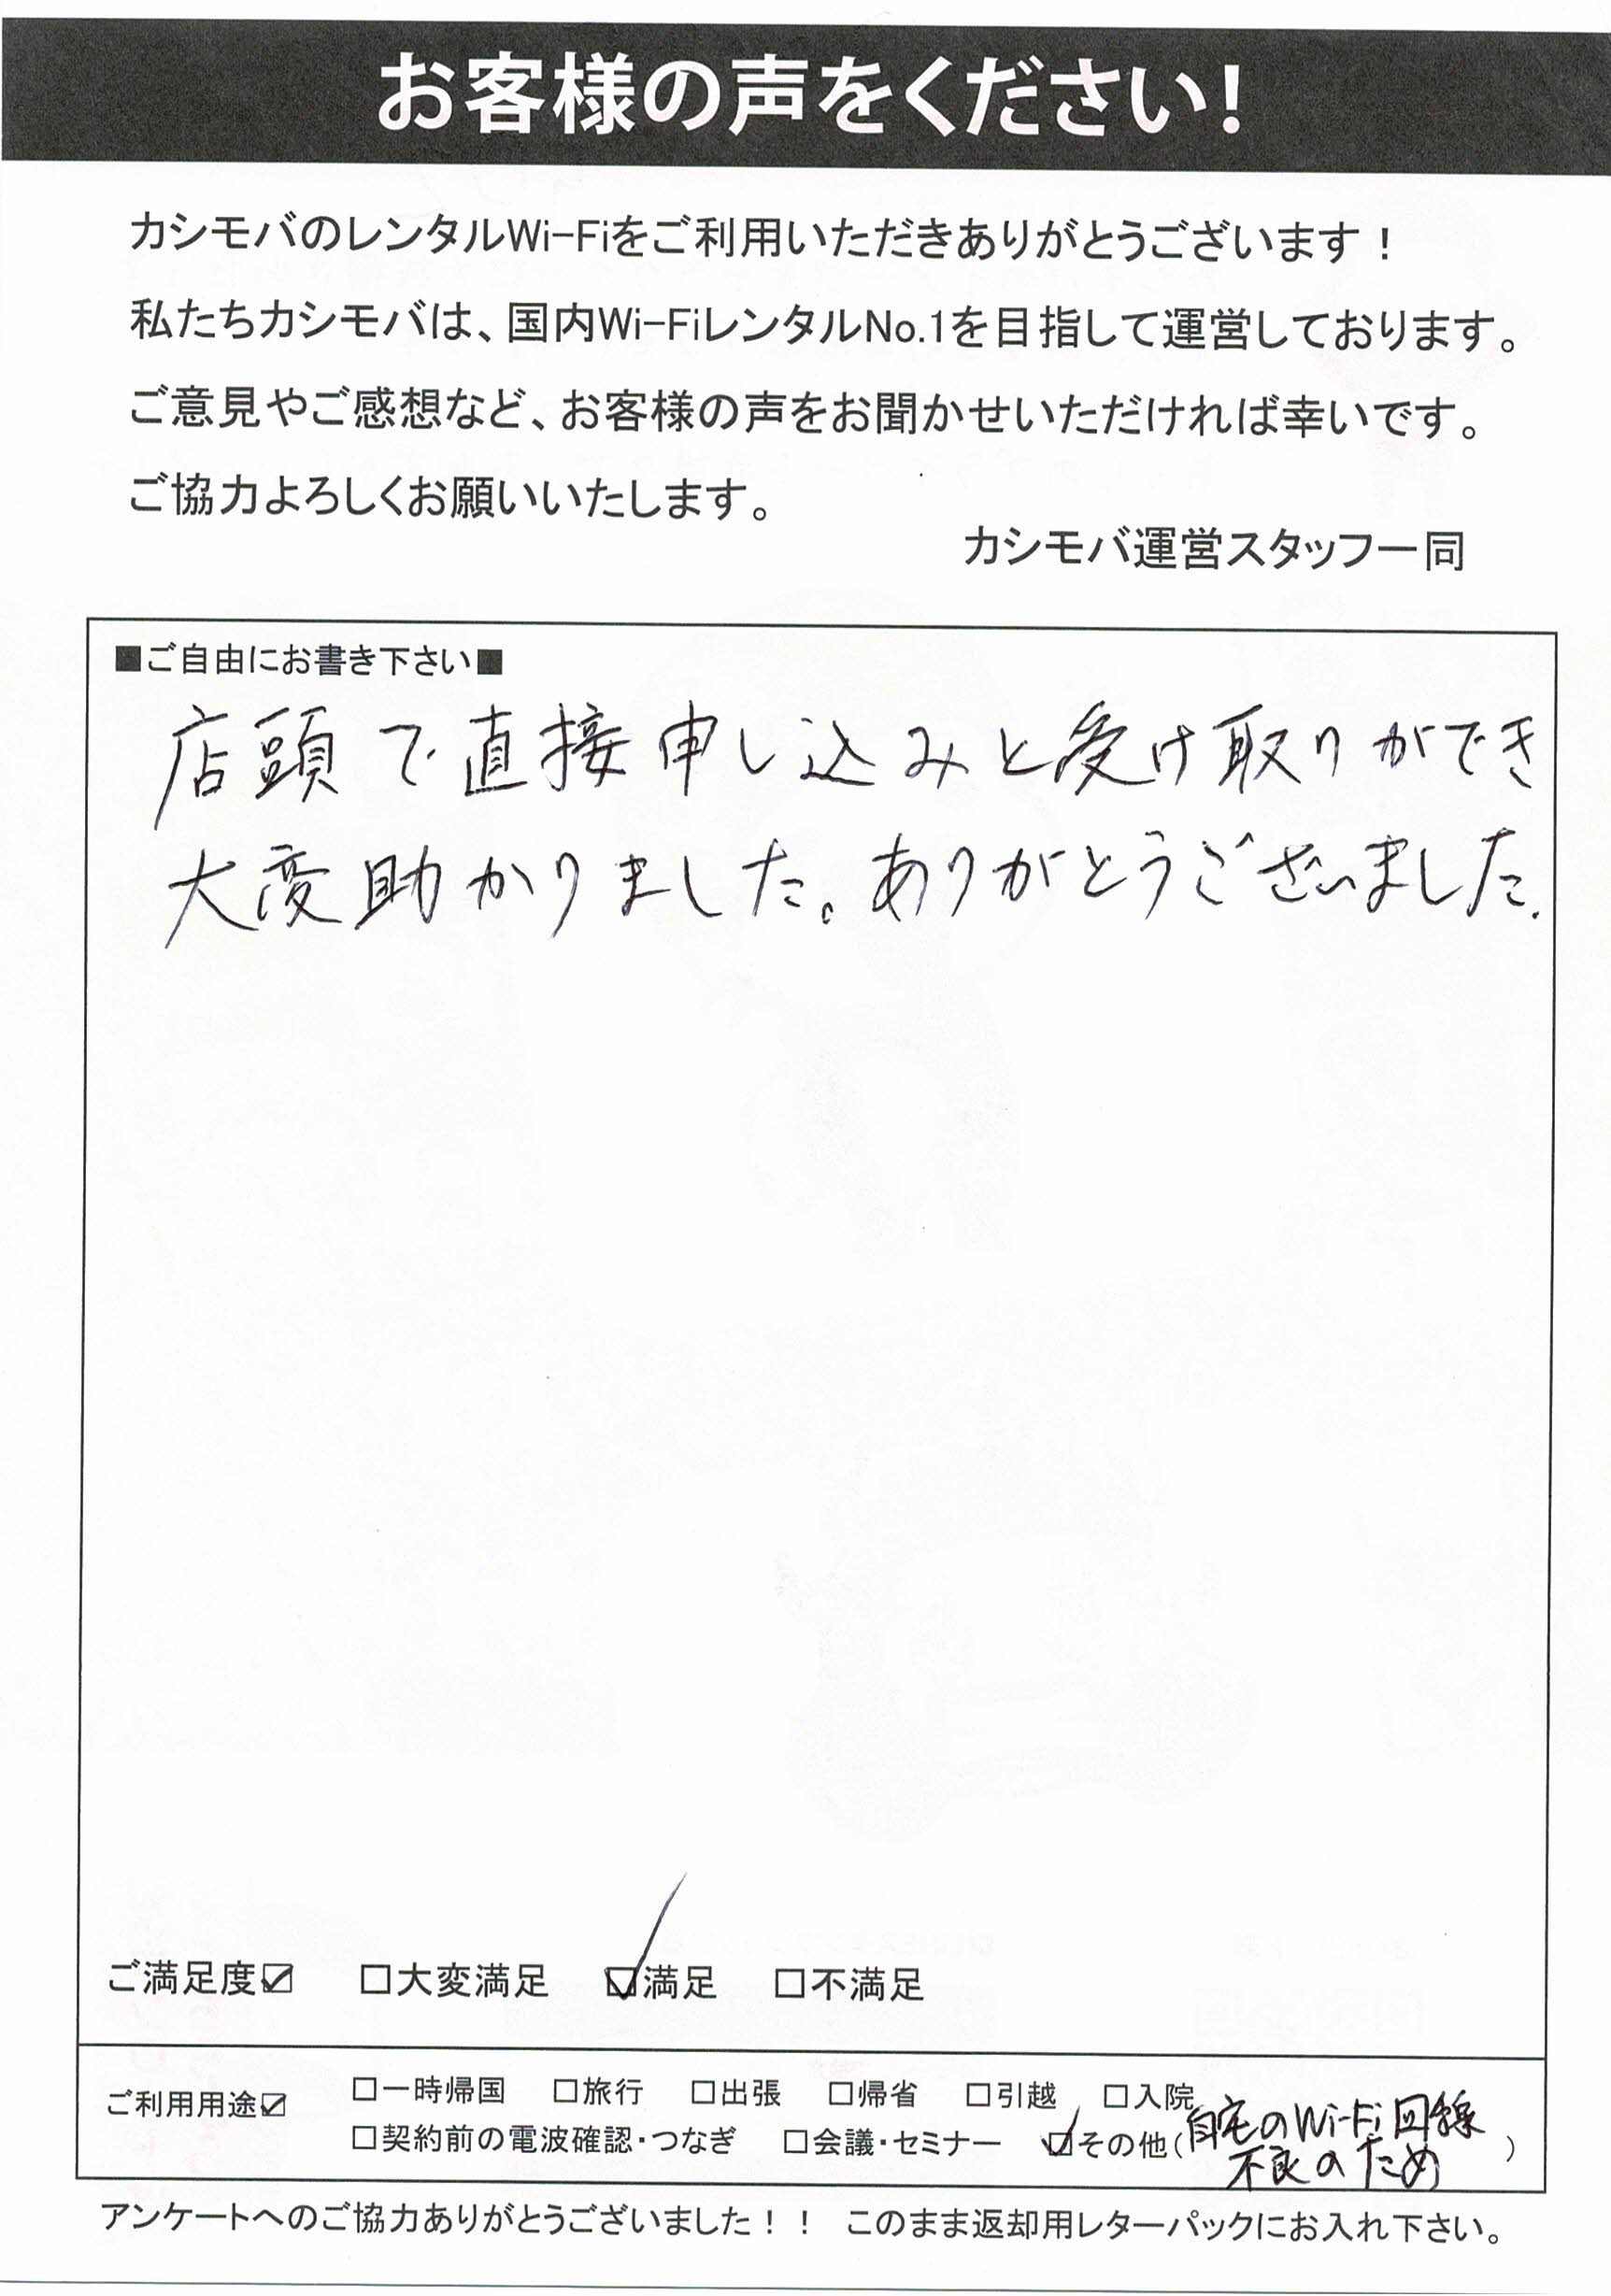 お客様の声をください!
カシモバのレンタルWi-Fiをご利用いただきありがとうございます！
私たちカシモバは、国内Wi-FiレンタルNo.1を目指して運営しております。
ご意見やご感想など、お客様の声をお聞かせいただければ幸いです。
ご協力よろしくお願いいたします。
カシモバ運営スタッフ一同
■ご自由にお書き下さい■
店頭で直接申し込みと受け取りができ
大変助かりました。ありがとうございました.
ご満足度☑ □大変満足 ☑満足 □不満足
ご利用用途☑ □一時帰国 □旅行 □出張 □帰省 □引越 □入院
□契約前の電波確認・つなぎ □会議・セミナー ☑その他(自宅のWi-Fi回線
不良のため)
アンケートへのご協力ありがとうございました！！ このまま返却用レターパックにお入れ下さい。